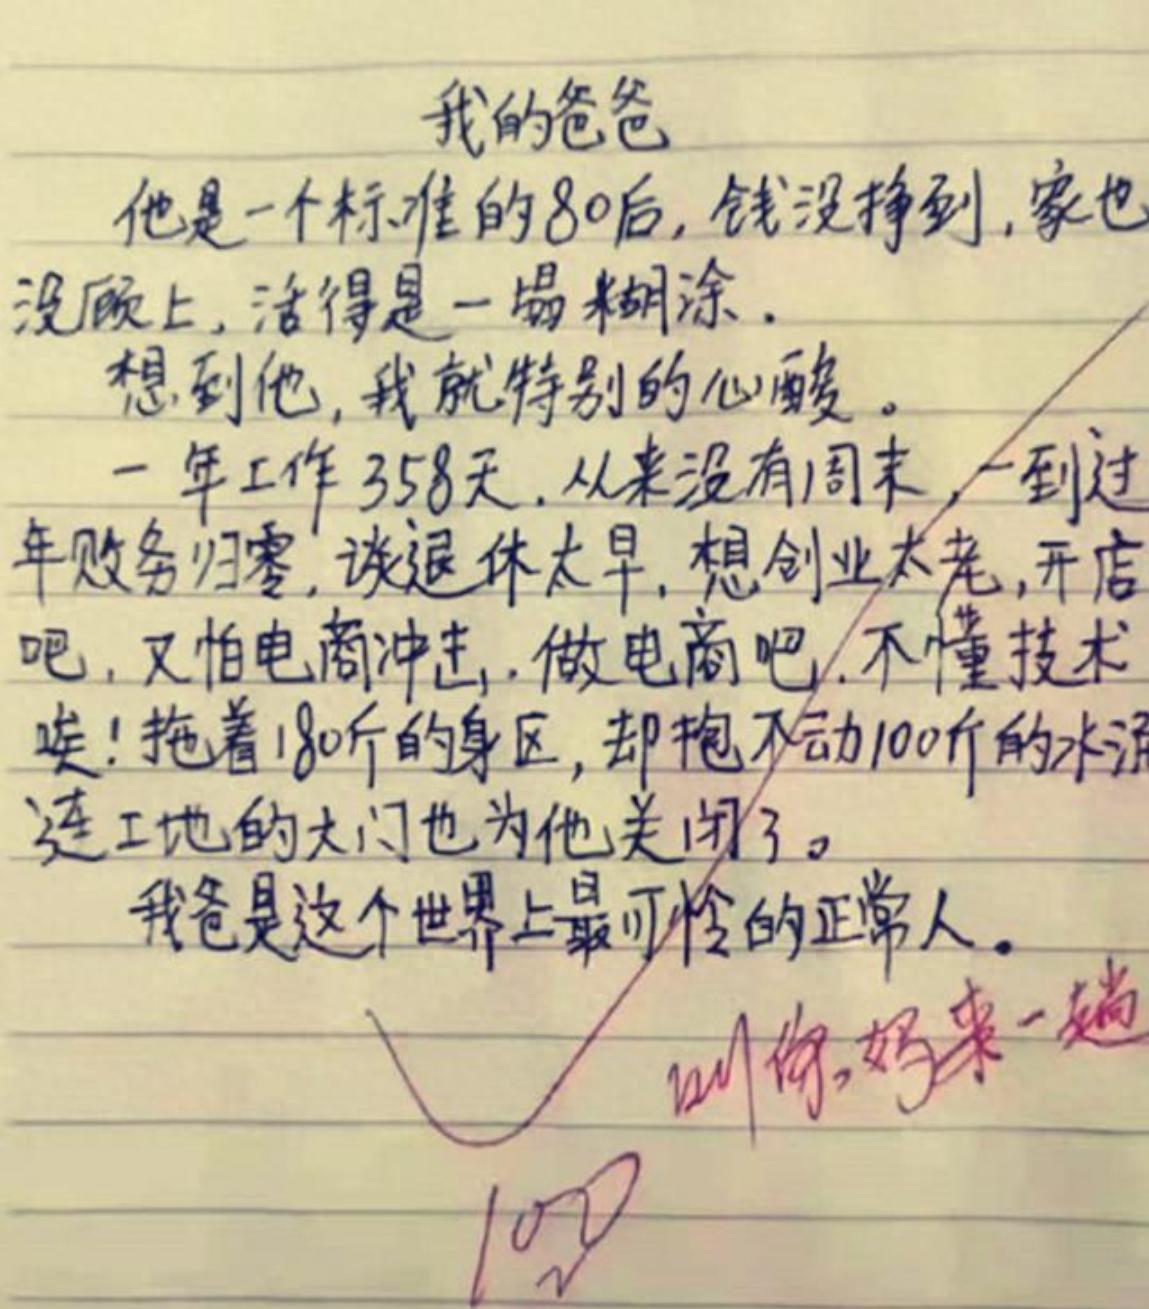 我的爸爸
他是一个标准的80后,钱没挣到,家也
没顾上,活得是一塌糊涂.
想到他,我就特别的心酸。
一年工作358天.从来没有周末,一到过
年败务归零,谈退休太早.想创业太老,开店
吧,又怕电商冲击,.做电商吧,不懂技术
唉!拖着180斤的身区,却抱不动100斤的水泥
连工地的大门也为他关闭了。
我爸是这个世界上最可怜的正常人。
叫你妈来一趟
100